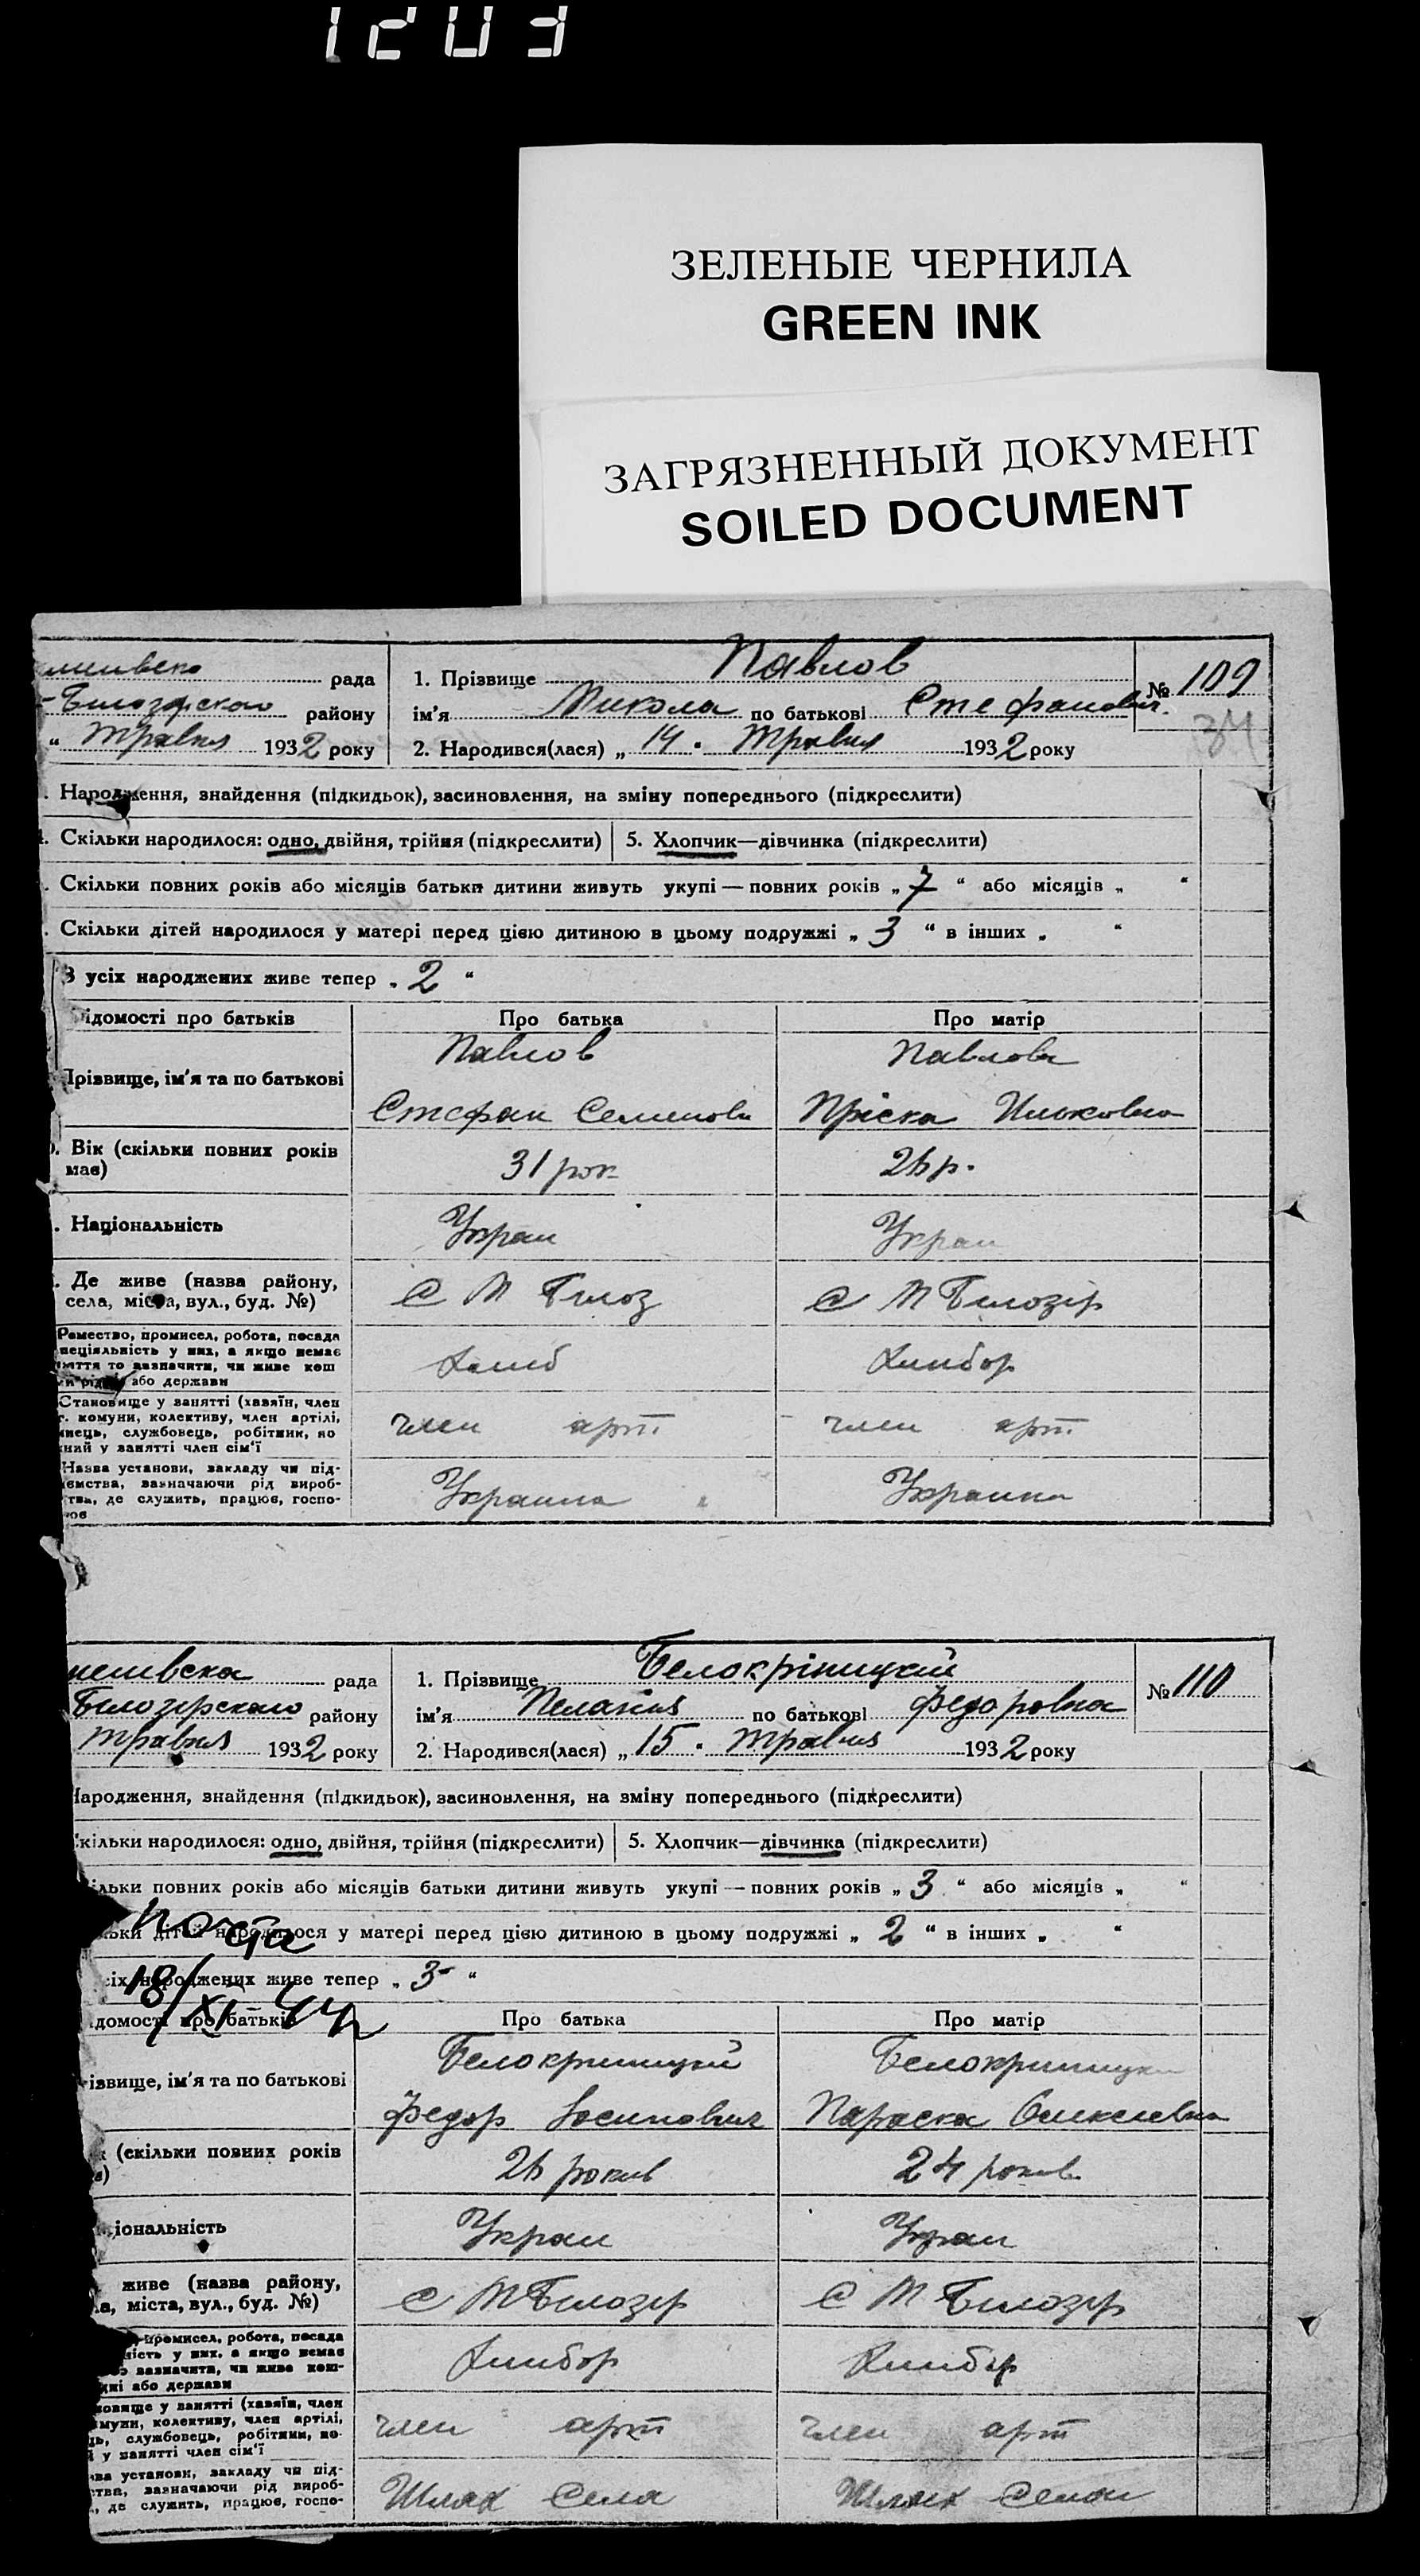 1203
ЗЕЛЕНЫЕ ЧЕРНИЛА
GREEN INK
ЗАГРЯЗНЕННЫЙ ДОКУМЕНТ
SOILED DOCUMENT
рада
району
" Травня 1932 року
1. Прізвище Павлов
ім'я Микола по батькові Стефанович
2. Народився(лася) „ 14 " Травня 1932 року
№ 109
34
Народження, знайдення (підкидьок), засиновлення, на зміну попереднього (підкреслити)
Скільки народилося: одно, двійня, трійня (підкреслити) 5. Хлопчик—дівчинка (підкреслити)
Скільки повних років або місяців батьки дитини живуть укупі — повних років „ 7 " або місяців „ "
Скільки дітей народилося у матері перед цією дитиною в цьому подружжі „ 3 " в інших „ "
З усіх народжених живе тепер „ 2 "
ідомості про батьків Про батька Про матір
Прізвище, ім'я та по батькові
Павлов Павлова
Стефан Семенови Пріска
Вік (скільки повних років має)
31 рок 26 р.
Національність
Украи Украи
Де живе (назва району,
села, міста, вул., буд. №)
С М Білоз С М Білозір
Ремество, промисел, робота, посада
пеціяльність у них, а якщо немає
няття то зазначити, чи живе кош
або держави
Хлиб Хлибор
Становище у занятті (хазяїн, член
комуни, колективу, член артілі,
службовець, робітник, по
у занятті член сім'ї
член арт. член арт.
Назва установи, закладу чи під-
ємства, зазначаючи рід вироб-
тва, де служить, працює, госпо-
Украина Украина
рада
Білозірского району
Травня 1932 року
1. Прізвище Белокріницкий
ім'я Пелагия по батькові Федоровна
2. Народився(лася) „ 15 " Травня 1932 року
№ 110
Народження, знайдення (підкидьок), засиновлення, на зміну попереднього (підкреслити)
кільки народилося: одно, двійня, трійня (підкреслити) 5. Хлопчик—дівчинка (підкреслити)
ільки повних років або місяців батьки дитини живуть укупі — повних років „ 3 " або місяців „ "
ьки дітей народилося у матері перед цією дитиною в цьому подружжі „ 2 " в інших „ "
сіх народжених живе тепер „ 3 "
18/XI 44
домості про батьків Про батька Про матір
ізвище, ім'я та по батькові
Белокриницкий Белокриницки
Федор Йосипович Параска Олексієвна
(скільки повних років
26 роков 24 роков
іональність
Украи Украи
живе (назва району,
а, міста, вул., буд. №)
С М Білозір С М Білозір
промисел, робота, посада
ність у них, а якщо немає
зазначити, чи живе кош-
дні або держави
Хлибор Хлибор
новище у занятті (хазяїн, член
муни, колективу, член артілі,
ць, службовець, робітник, по-
й у занятті член сім'ї
член арт член арт
ва установи, закладу чи під-
ства, зазначаючи рід вироб-
, де служить, працює, госпо-
Шлях Села Шлях Села